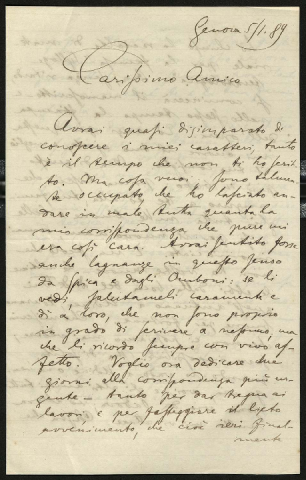 Genova 5/1.89
Carissimo Amico
Avrai quasi disimparato di
conoscere i miei caratteri, tanto
è il tempo che non ti ho scrit-
to. Ma cosa vuoi sono talmen-
te occupato, che ho lasciato an-
dare in male tutta quanta la
mia corrispondenza che pure mi
era così cara. Avrai sentito forse
anche lagnanze in questo senso
da Spica e dagli Omboni: se li
vedi, salutameli caramente e
di a loro, che non sono proprio
in grado di scrivere a nessuno, ma
che li ricordo sempre con vivo af-
fetto. Voglio ora dedicare due
giorni alla corrispondenza più ur-
gente – tanto per dar tregua ai
lavori e per festeggiare il lieto
avvenimento, che cioè ieri final-
mente